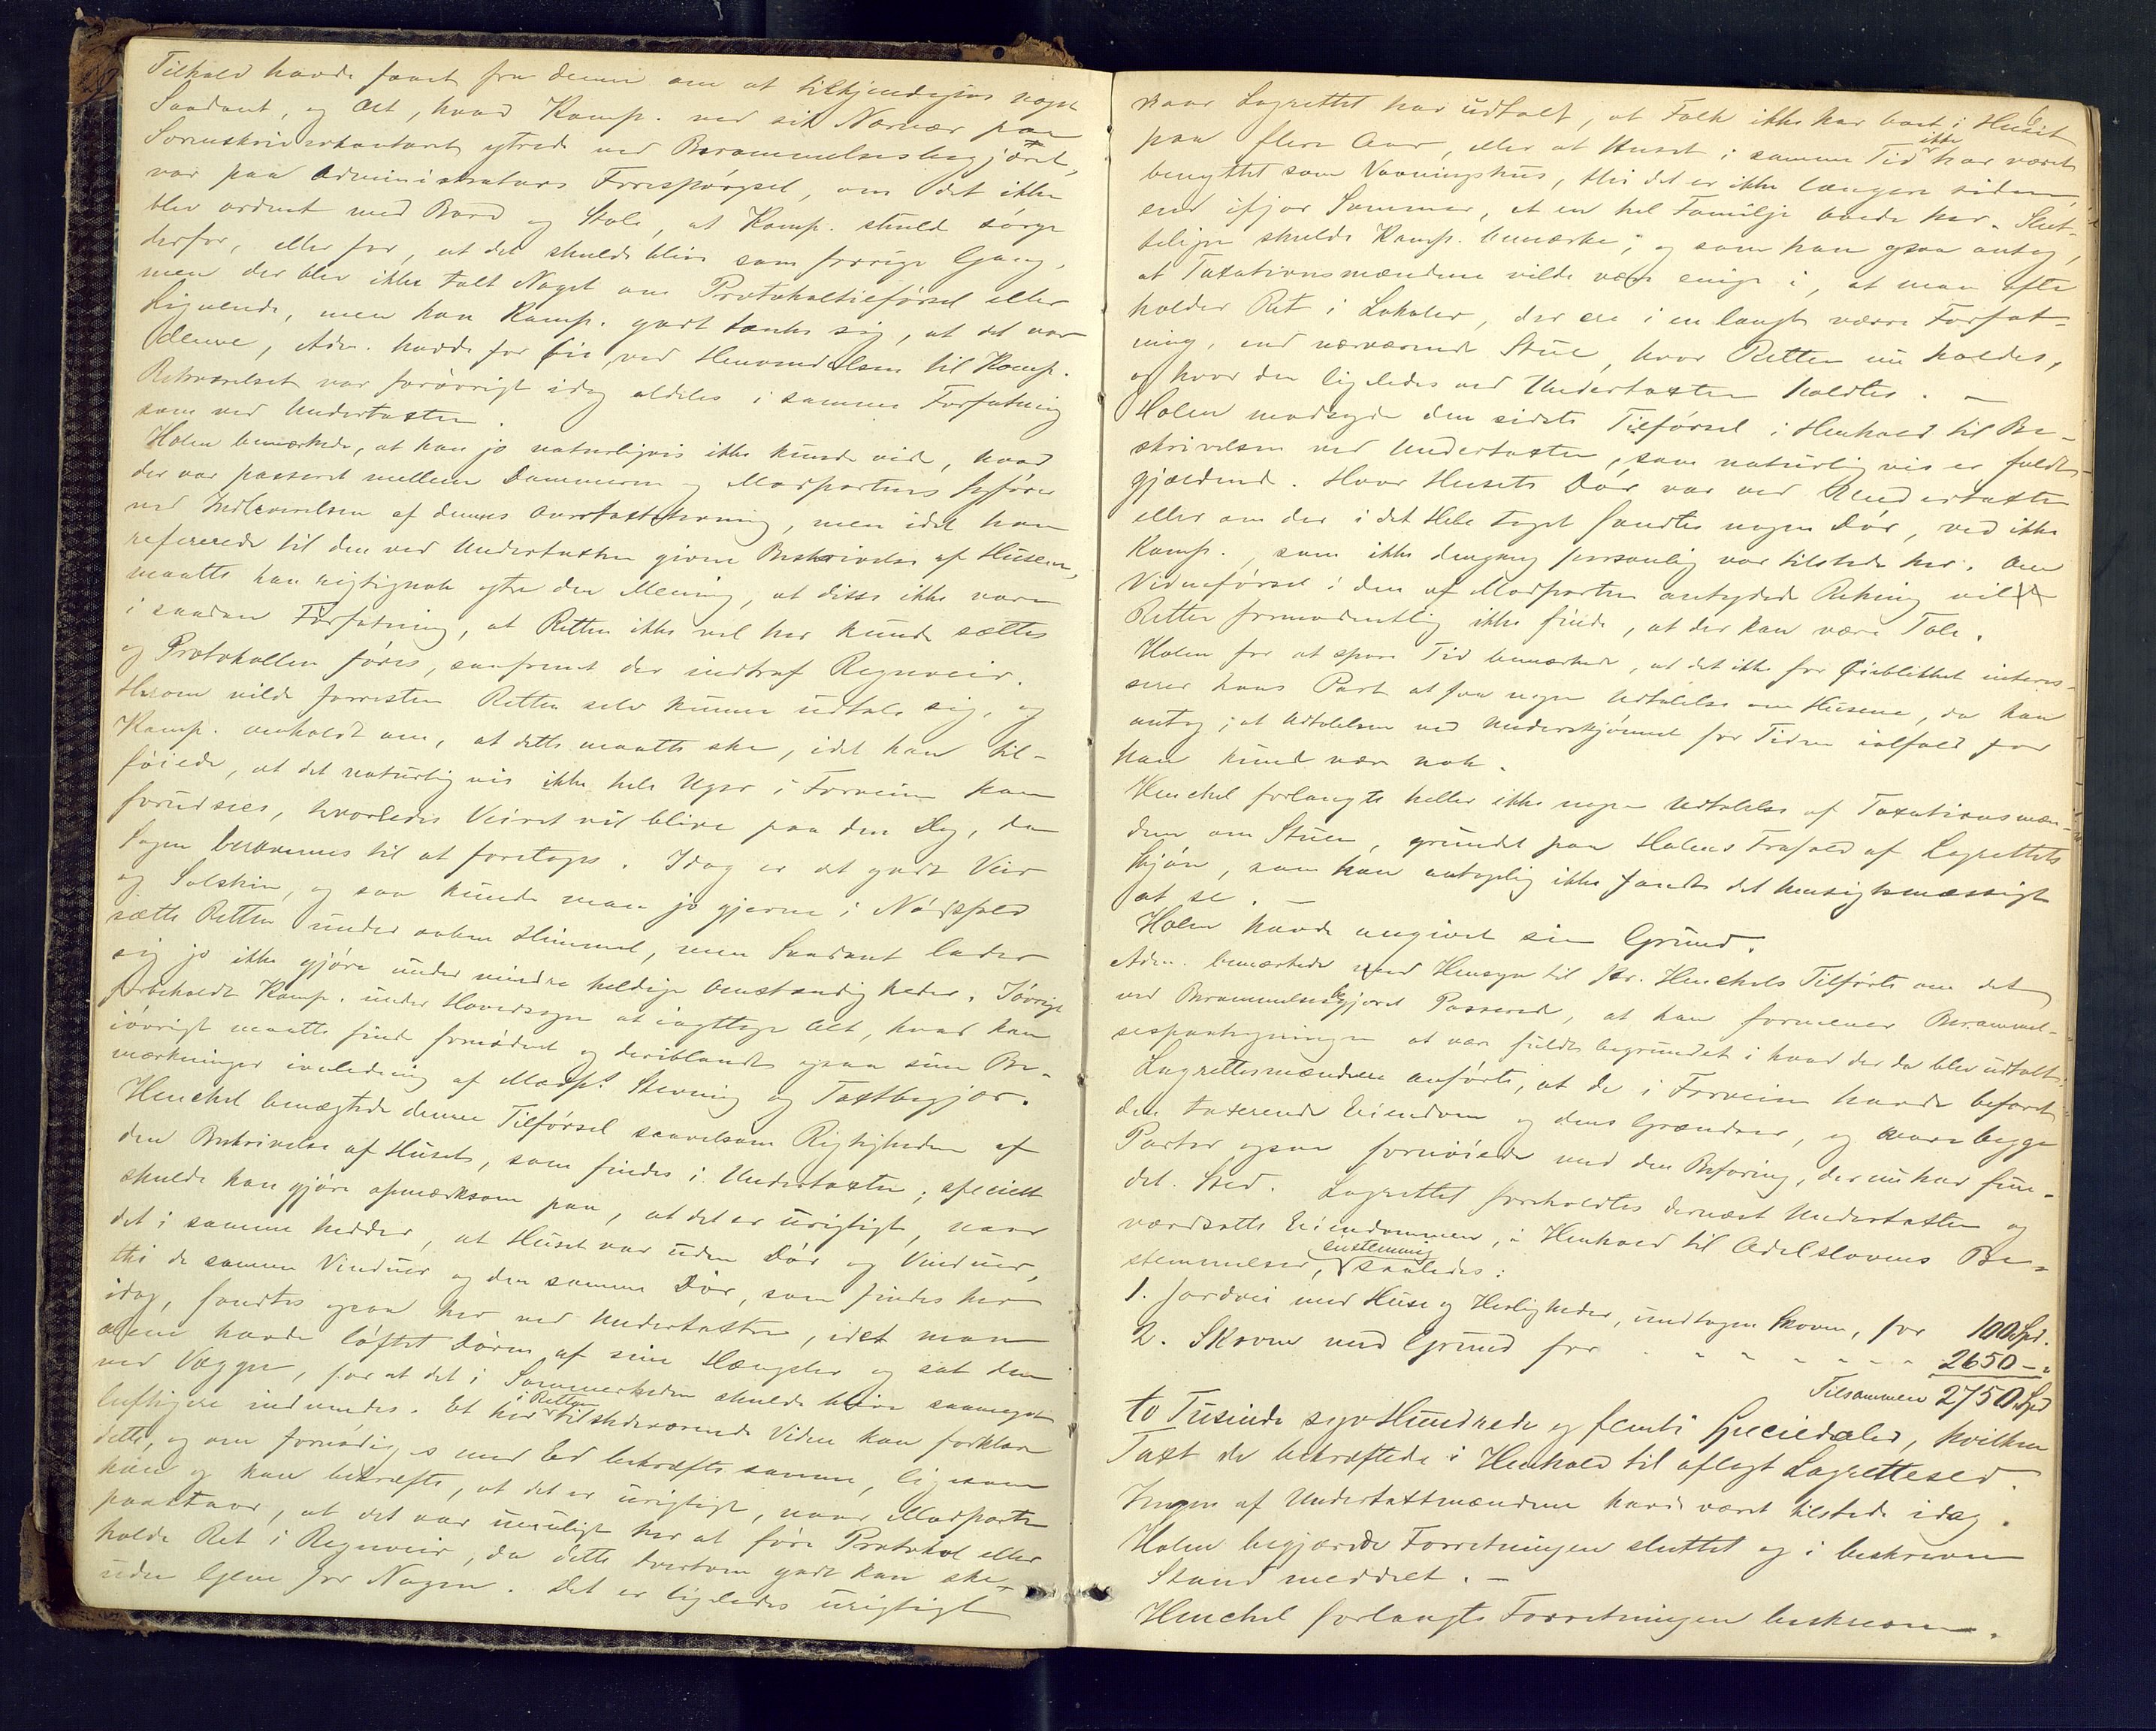 Tilhold havde faaet fra denne om at tilkjendegive noget
Saadant, og Alt, hvad Komp. ved sit Nærvær paa
Sorenskriverkontoret ytrede ved Berammelsesbegjæret,
var paa Administrators Forespørgsel, om det ikke
blev ordnet med Bord og Stole, at Komp. skulde sørge
derfor, eller for, at det skulde blive som forrige Gang,
men der blev ikke talt Noget om Protokoltilførsel eller
Lignende, men kan Komp. godt tænke sig, at det var
denne, Adm. havde for Øie ved Henvendelsen til Komp.
Retsværelset var forøvrigt idag aldeles i samme Forfatning
som ved Undertaxten.
Holm bemærkede, at han jo naturligvis ikke kunde vide, hvad
der var passeret mellem Dommeren og Modpartens Sagfører
ved Indleverelsen af dennes Overtaxtstevning, men idet han
refererede til den ved Undertaxten givne Beskrivelse af Husene,
maatte han rigtignok ytre den Mening, at disse ikke vare
i saadan Forfatning, at Retten ikke vel her kunde sættes
og Protokollen føres, saafremt der indtraf Regnveir.
Herom vilde forresten Retten selv kunne udtale sig, og
Komp. anholdt om, at dette maatte ske, idet han til-
føiede, at det naturligvis ikke hele Uger i Forveien kan
forudsees, hvorledes Veiret vil blive paa den Dag, da
Sagen berammes til at foretages. Idag er det godt Veir
og Solskin, og saa kunde man jo gjerne i Nødsfald
sætte Retten under aaben Himmel, men Saadant lader
sig jo ikke gjøre under mindre heldige Omstændigheder. Iøvrigt
forbeholdt Komp. under Hovedsagen at iagttage Alt, hvad han
iøvrigt maatte finde fornødent og deriblandt ogsaa sine Be-
mærkninger i anledning af Modp.s Stevning og Taxtbegjær.
Henchel benægtede denne Tilførsel saavelsom Rigtigheden af
den Beskrivelse af Huset, som findes i Undertaxten; specielt
skulde han gjøre opmærksom paa, at det er urigtigt, naar
det i samme hedder, at Huset var uden Dør og Vinduer,
thi de samme Vinduer og den samme Dør, som findes her
idag, fandtes ogsaa her ved Undertaxten, idet man
alene havde løftet Døren af sine Hængsler og sat den
ved Væggen, for at det i Sommerheden skulde blive saameget
luftigere indvendig. Et her i Retten tilstedeværende Vidne kan forklare
dette, og om fornødiges med Ed bekræfte samme, ligesom
han og kan bekræfte, at det er urigtigt, naar Modparten
paastaar, at det var umuligt her at føre Protokol eller
holde Ret i Regnveir, da dette tvertom godt kan ske
uden Gene for Nogen. Det er ligeledes urigtigt
6
naar Lagrettet har udtalt, at Folk ikke har boet i Huset
paa flere Aar, eller at Huset i samme Tid ikke har været
benyttet som Vaaningshus, thi det er ikke længere siden,
end ifjor Sommer, at en hel Familje boede her. Slut-
teligen skulde Komp. bemærke, og som han ogsaa antog,
at Taxationsmændene vilde være enige i, at man ofte
holder Ret i Lokaler, der ere i en langt værre Forfat-
ning, end nærværende Stue, hvor Retten nu holdes,
og hvor den ligeledes ved Undertaxten holdtes. —
Holm modsagde den sidste Tilførsel i Henhold til Be-
skrivelsen ved Undertaxten, som naturligvis er fuldt
gjældende. Hvor Husets Dør var ved Undertaxten
eller om der i det Hele taget fandtes nogen Dør, ved ikke
Komp., som ikke dengang personlig var tilstede her. Om
Vidneførsel i den af Modparten antydede Retning vil
Retten formodentlig ikke finde, at der kan være Tale.
Holm for at spare Tid bemærkede, at det ikke for Øieblikket interes-
serer hans Part at faa nogen Udtalelse om Husene, da han
antog, at Udtalelsen ved Underskjønnet for Tiden ialfald for
ham kunde være nok.
Henchel forlangte heller ikke nogen Udtalelse af Taxationsmæn-
dene om Stuen, grundet paa Holms Frafald af Lagrettets
Skjøn, som han antagelig ikke fandt det hensigtsmæssigt
at se. —
Holm havde angivet sin Grund.
Adm. bemærkede med Hensyn til Hr. Henchels Tilførte om det
ved Berammelsesbegjæret Passerede, at han formener Berammel-
sespaategningen at være fuldt begrundet i hvad der da blev udtalt.
Lagrettesmændene anførte, at de i Forveien havde befaret
den taxerende Eiendom og dens Grændser, og vare begge
Parter ogsaa fornøiede med den Befaring, der nu har fun-
det Sted. Lagrettet foreholdtes dernæst Undertaxten og
værdsatte Eiendommen, i Henhold til Odelslovens Be-
stemmelser, eenstemmig saaledes:
1. Jordvei med Huse og Herligheder, undtagen Skoven, for 100 Spd.
2. Skoven med Grund for - - - - - - - 2650 - "
Tilsammen 2750 Spd
to Tusinde syv Hundrede og femti Speciedaler, hvilken
Taxt de bekræftede i Henhold til aflagt Lagretteseed.
Ingen af Undertaxtmændene havde været tilstede idag.
Holm begjærede Forretningen sluttet og i beskreven
Stand meddelt. —
Henchel forlangte Forretningen beskreven.